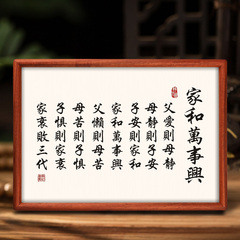 家和萬事興
父愛則母靜
母靜則子安
子安則家和
家和萬事興
父懶則母苦
母苦則子懼
子懼則家衰
家衰敗三代